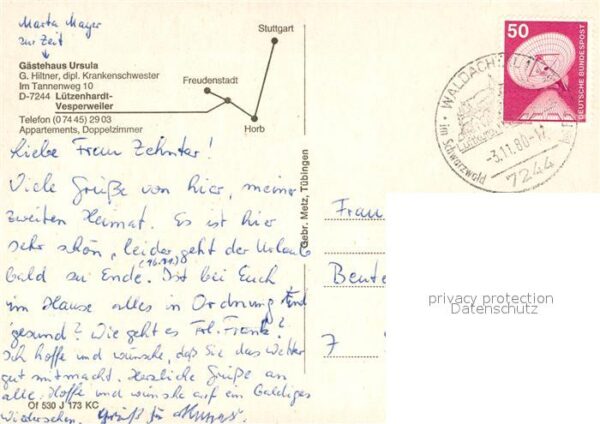 Marta Mayer
zur Zeit
Gästehaus Ursula
G. Hiltner, dipl. Krankenschwester
Im Tannenweg 10
D-7244 Lützenhardt-
Vesperweiler
Telefon (0 74 45) 29 03
Appartements, Doppelzimmer
Stuttgart
Freudenstadt
Horb
50
DEUTSCHE BUNDESPOST
WALDACHTAL
Luftkurort
im Schwarzwald
-3.11.80-12
7244
Liebe Frau Zehnter!
Viele Grüße von hier, meiner
zweiten Heimat. Es ist hier
sehr schön, leider geht der Urlaub
(16.11.)
bald zu Ende. Ist bei Euch
im Hause alles in Ordnung und
gesund? Wie geht es Frl. Frank?
Ich hoffe und wünsche, daß Sie das Wetter
gut mitmacht. Herzliche Grüße an
alle. Hoffe und wünsche auf ein baldiges
Wiedersehen.
Gebr. Metz, Tübingen
Frau
Beute
7
privacy protection
Datenschutz
Of 530 J 173 KC